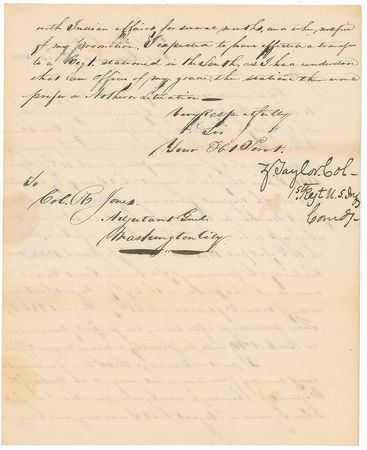 with Indian affairs for several months, and when notified
of my promotion, I expected to have effected a transfer
to a Regt. stationed in the South, as I had understood
that an officer of my grade, there stationed, would
prefer a Northern Situation —
Very Respectfully
Sir
Your Obt Servt.
Z Taylor Col-
1st Regt U.S. Inf
Comdg-
To
Col. R Jones.
Adjutant Genl.
Washington City